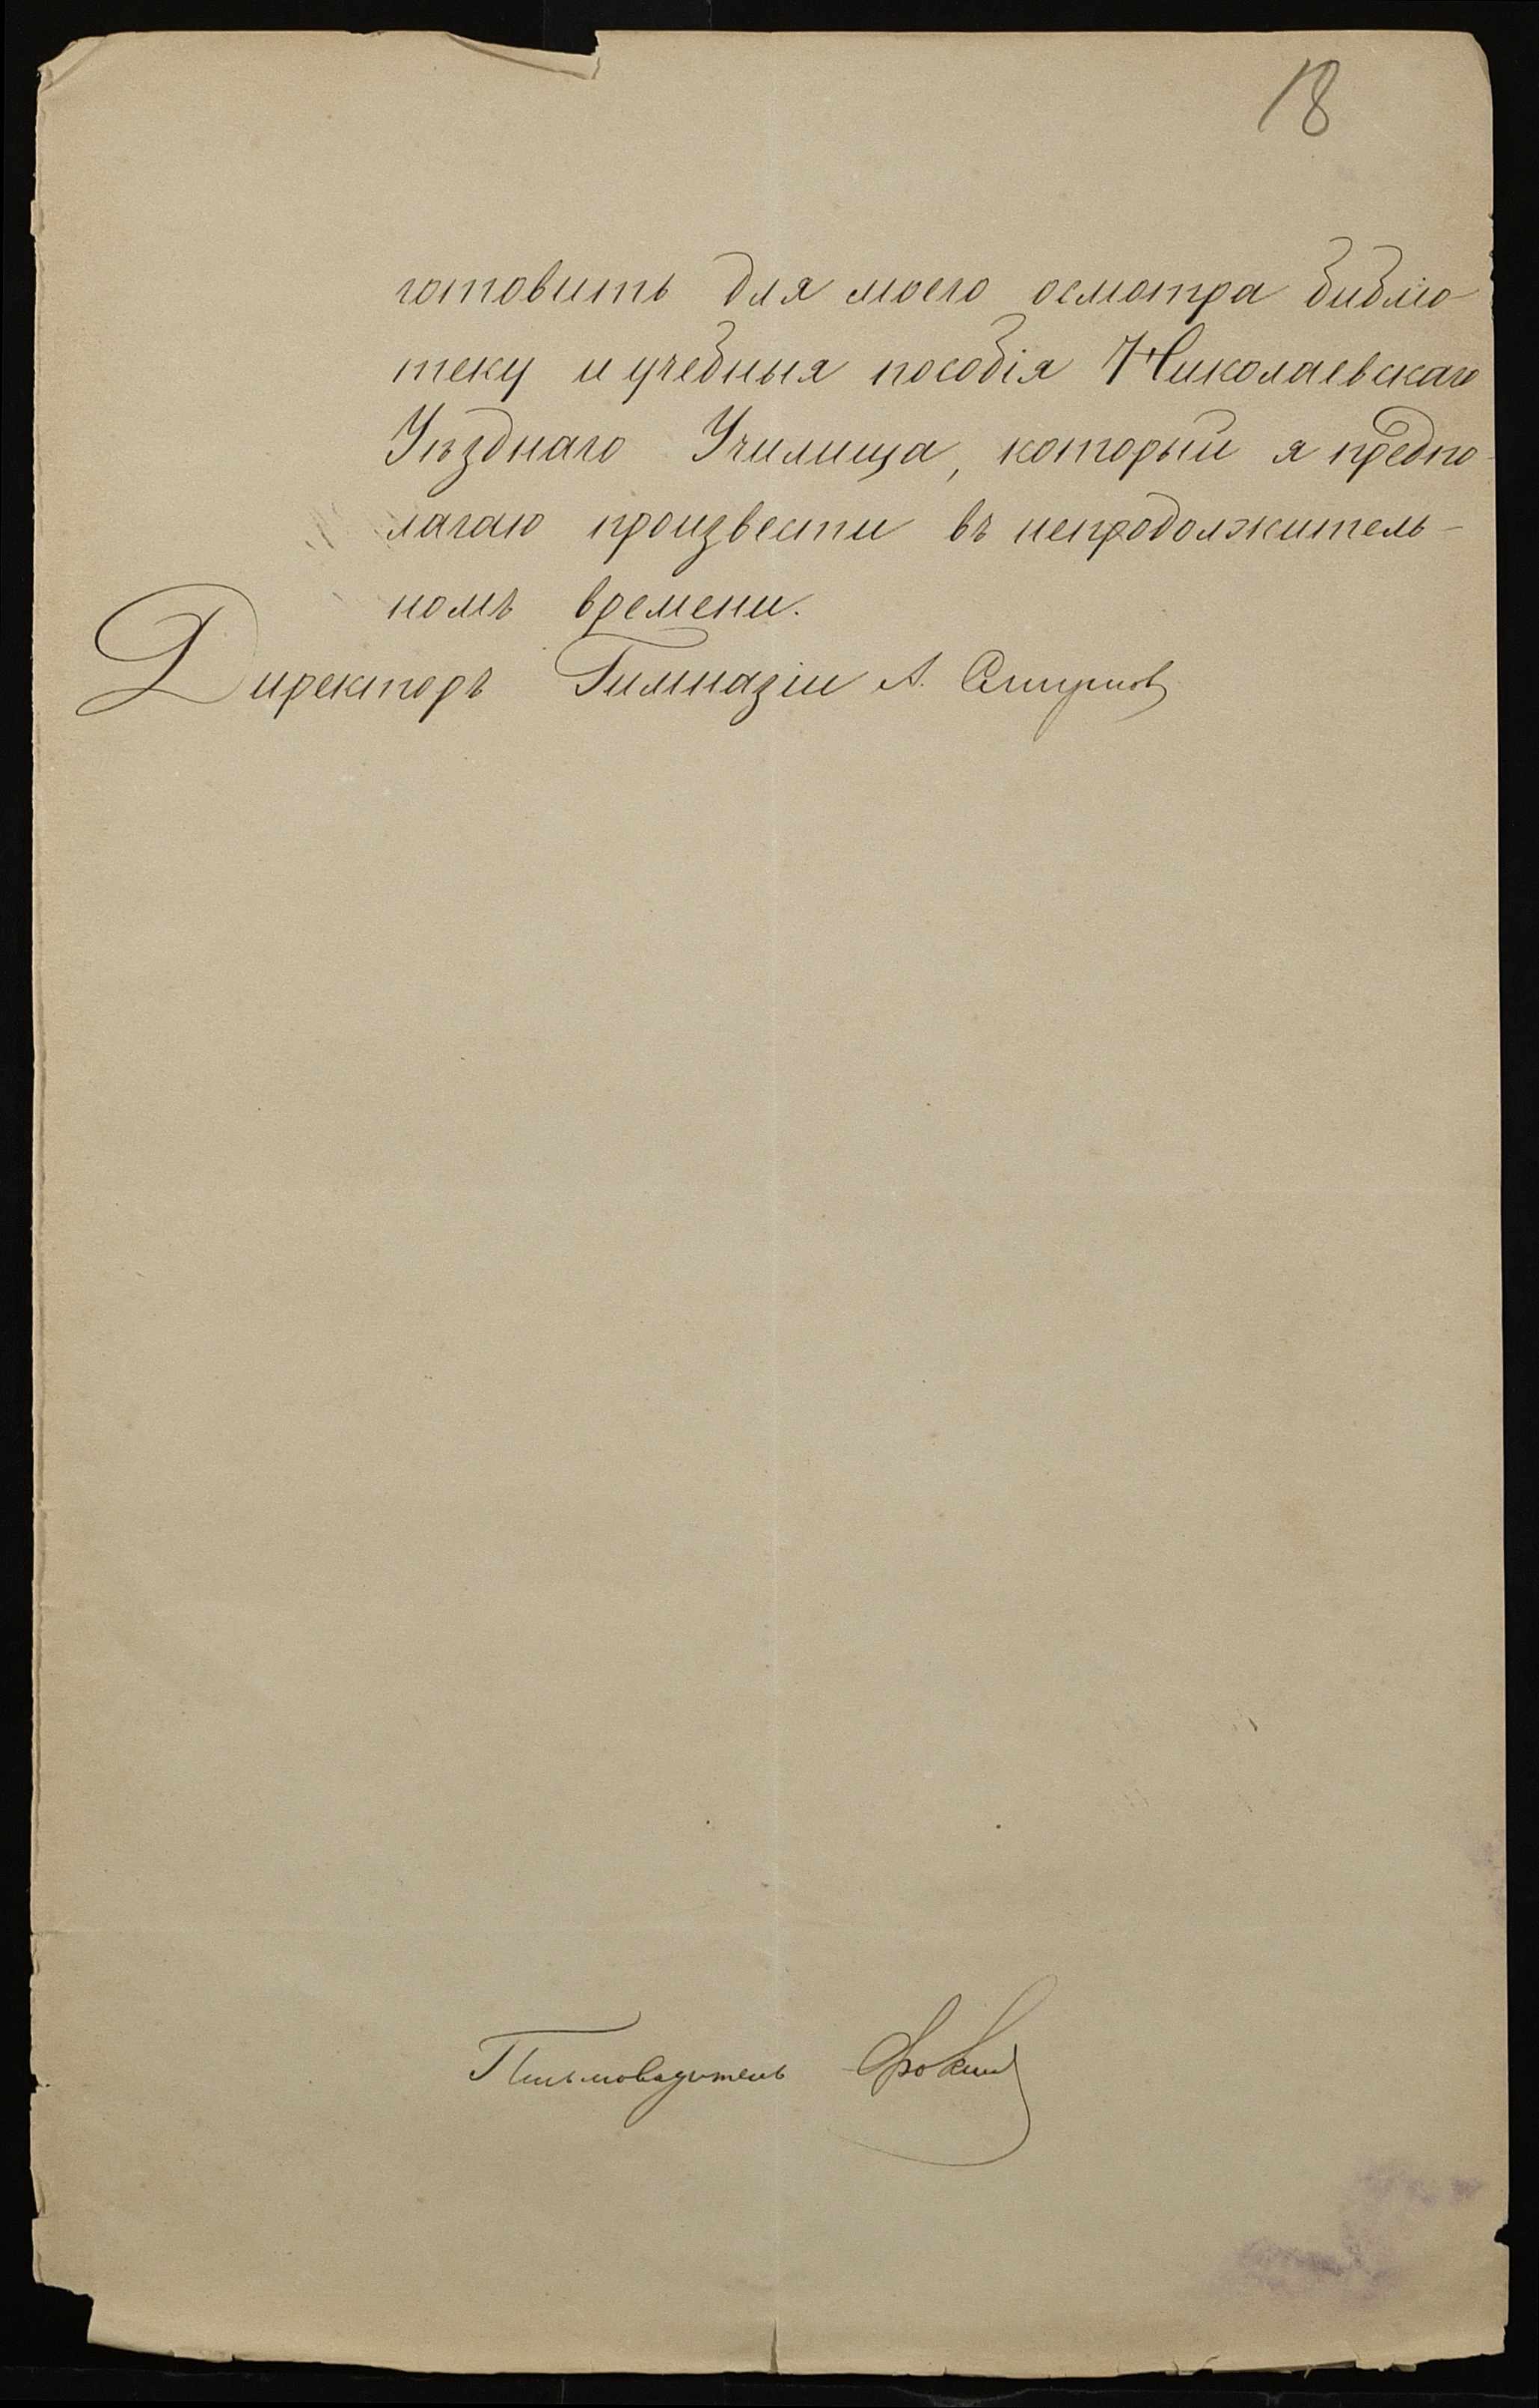 18
готовить для моего осмотра библіо-
теку и учебныя пособія Николаевскаго
Уѣзднаго Училища, который я предпо-
лагаю произвести въ непродолжитель-
номъ времени.
Директоръ Гимназіи А. Смирнов
Письмоводитель